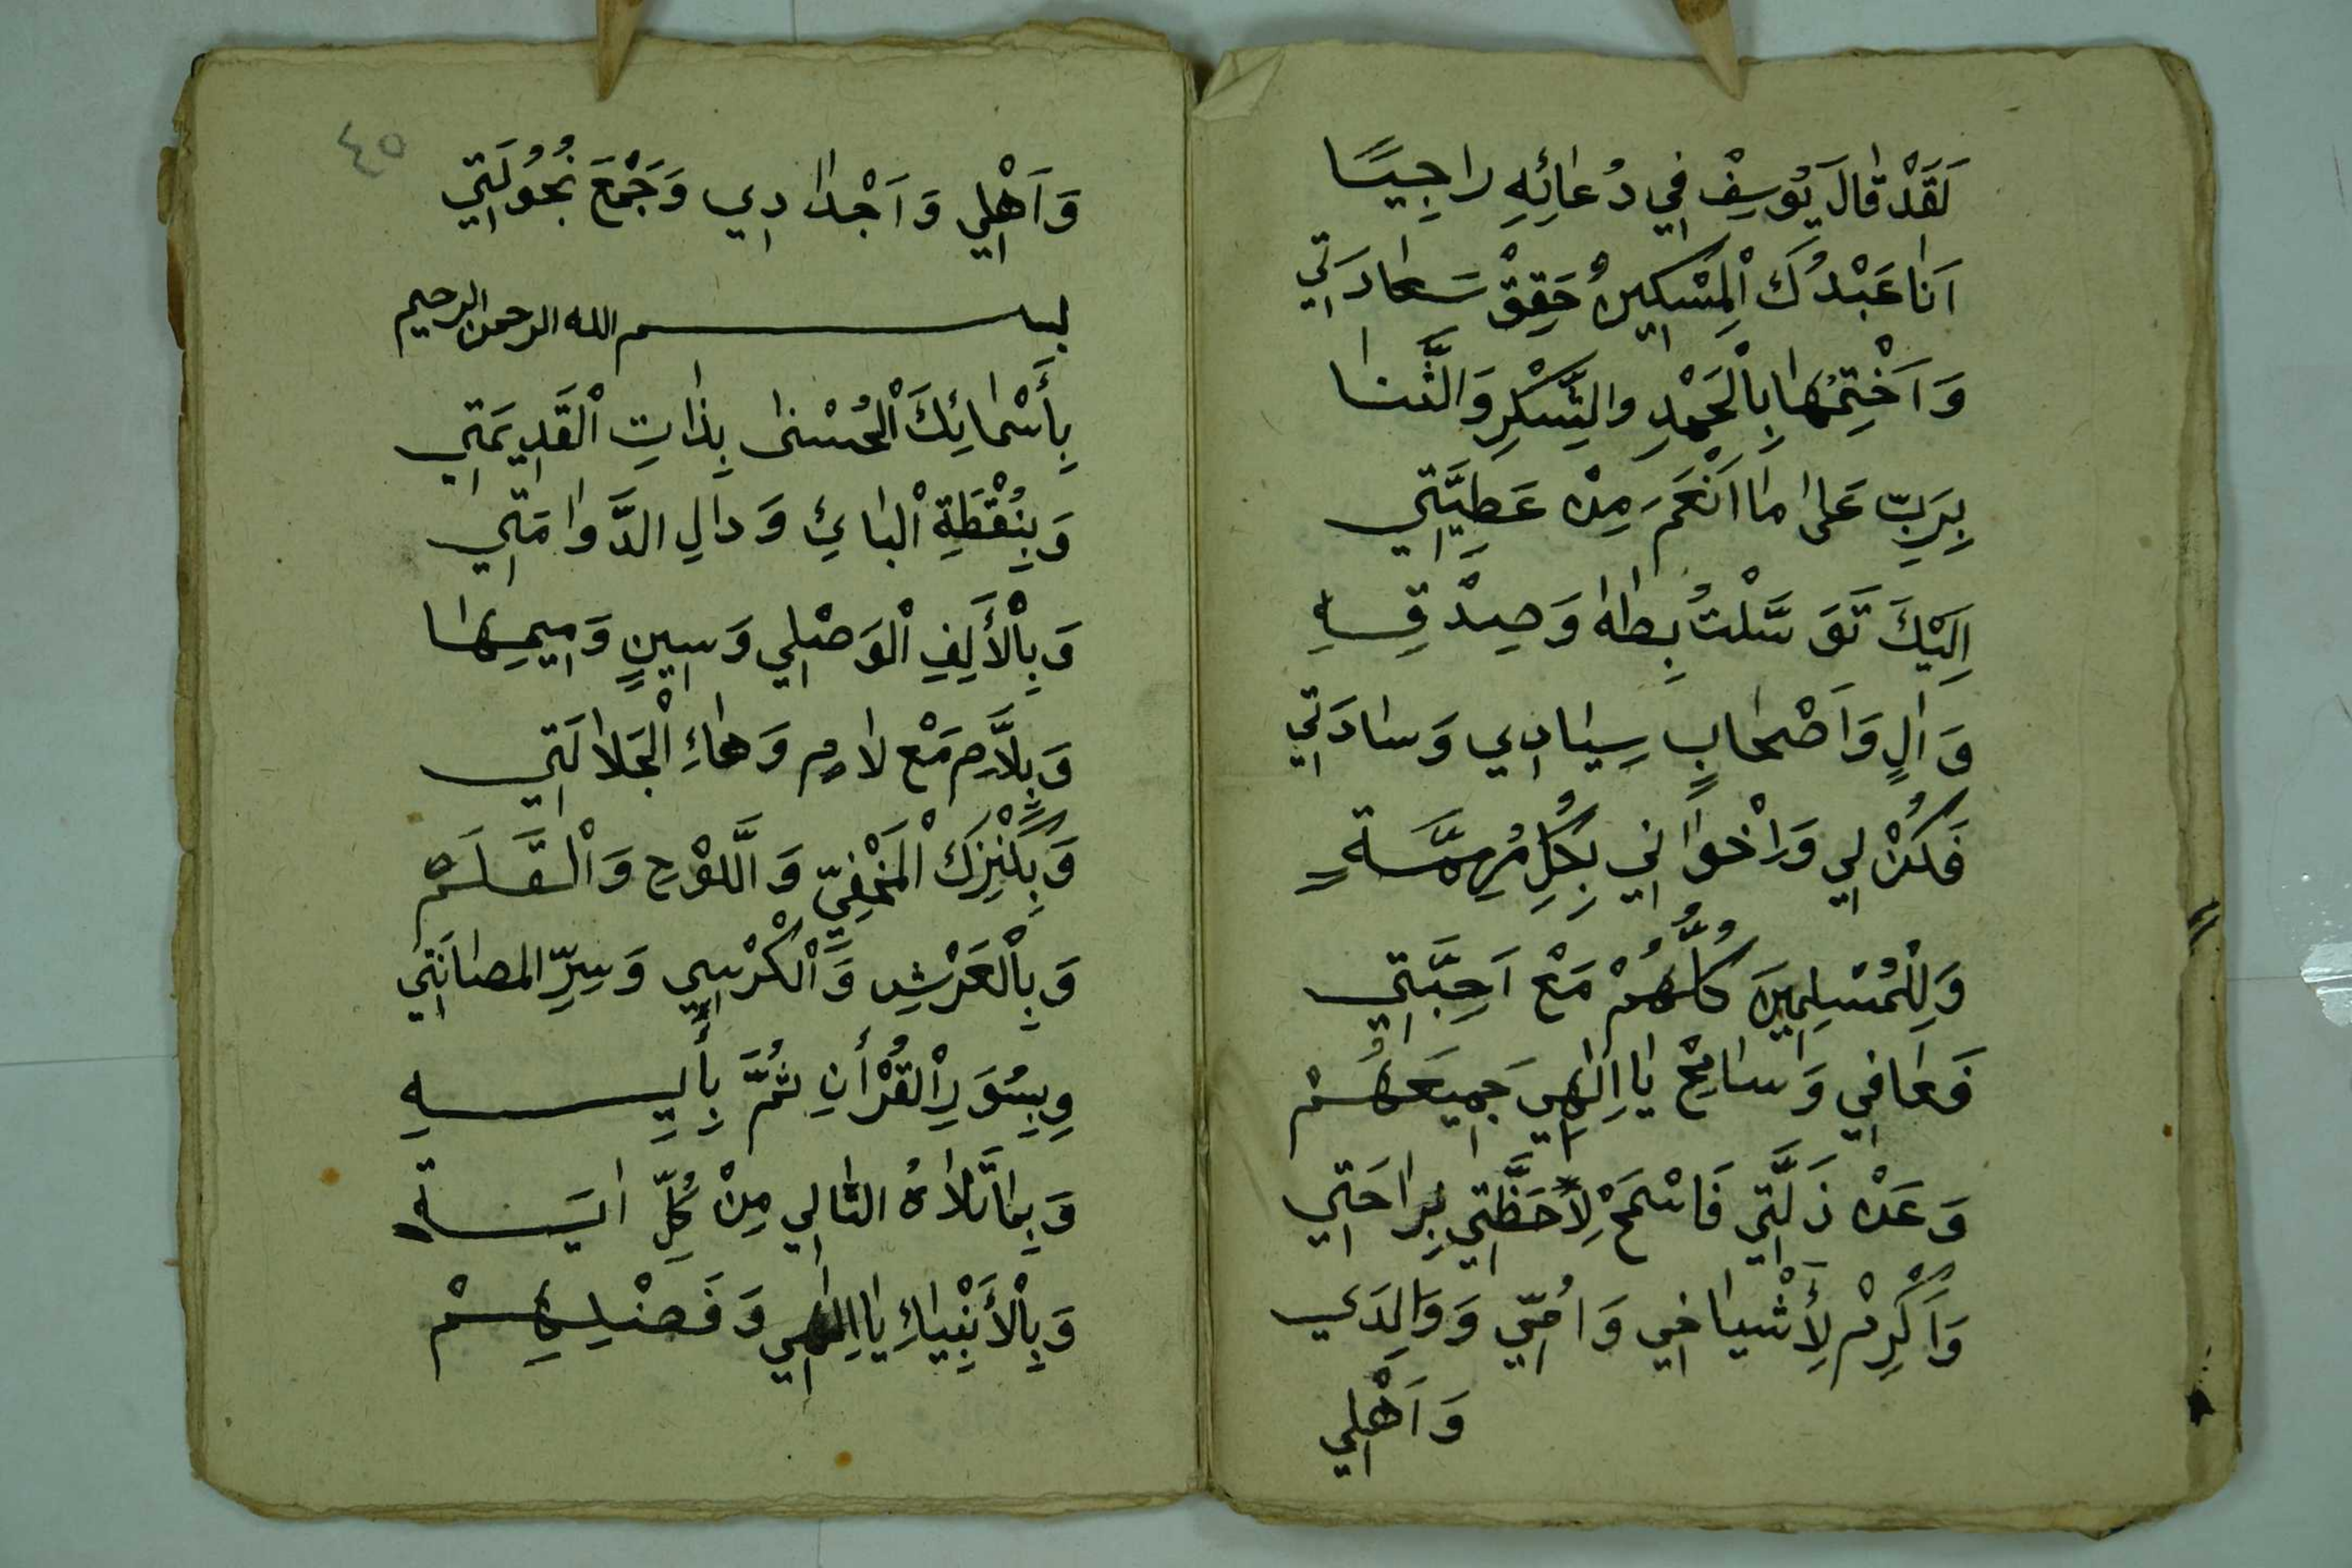 لَقَدْ قَالَ يُوسِفْ فِي دُعَائِهِ رَاجِيًا
اَنَا عَبْدُكَ الْمِسْكِينُ حَقِقْ سَعَادَتِي
وَاَخْتِمُهَا بِالْحَمْدِ والشُّكْرِ وَالثَّنَا
بِرَبِّ عَلىٰ مَا اَنْعَمَ مِنْ عَطِيَّتِي
اِلَيْكَ تَوَسَّلْتُ بِطٰهٰ وَصِدْقِهِ
وَاٰلٍ وَاَصْحَابٍ سِيَادِي وَسَادَتِي
فَكُنْ لِي وَاِخْوَانِي بِكُلِّ مُهِمَّةٍ
وَلِلْمُسْلِمِينَ كُلُّهُمْ مَعْ اَحِبَّتِي
فَعَافِي وَسَامِحْ يَا اِلٰهِي جَمِيعَهُمْ
وَعَنْ زَلَّتِي فَاسْمَحْ لِاَحَظَّتِي بِرَاحَتِي
وَاَكْرِمْ لِأَشْيَاخِي وَاُمِّي وَوَالِدَي
وَاَهْلِي
٤٥
وَاَهْلِي وَاَجْدَادِي وَجَمْعَ نُجُولَتِي
بسم الله الرحمن الرحيم
بِأَسْمَائِكَ الْحُسْنٰى بِذَاتِ الْقَدِيمَتِي
وَبِنُقْطَةِ الْبَائِ وَدَالِ الدَّوَامَتِي
وَبِالْأَلِفِ الْوَصْلِي وَسِينٍ وَمِيمِهَا
وَبِلَّامِ مَعْ لَامٍ وَهَاءِ الْجَلَالَتِي
وَبِكَنْزِكَ الْمَخْفِيِّ وَاللَّوْحِ وَالْقَلَمْ
وَبِالْعَرْشِ وَالْكُرْسِيِّ وَسِرِّ المصَانَتِي
وِبِسُوَرِ الْقُرْأٰنِ ثُمَّ بِأَيِهِ
وَبِمَا تَلَاهُ التَّالِي مِنْ كُلِّ اٰيَةٍ
وَبِالْأَنْبِيَاءِ يَا اِلٰهِي وَفَضْلِهِمْ